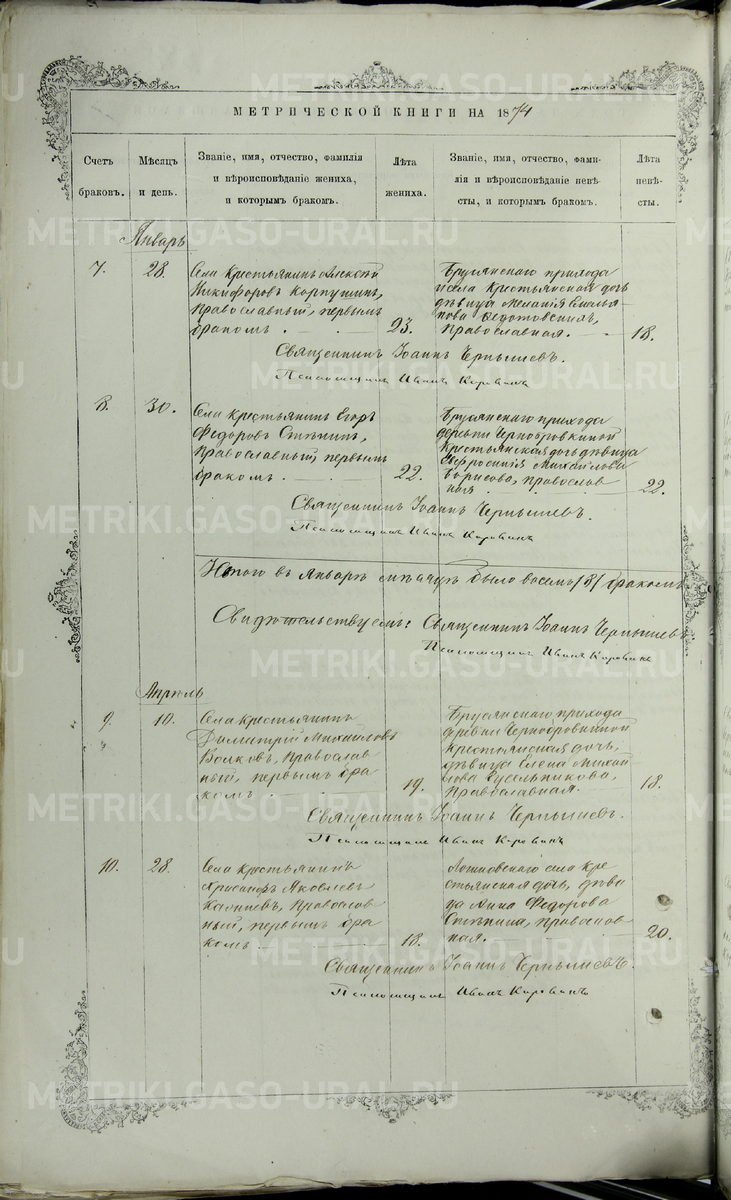 МЕТРИЧЕСКОЙ КНИГИ НА 1874
Счетъ браковъ.
Мѣсяцъ и день.
Званіе, имя, отчество, фамилія
и вѣроисповѣданіе жениха,
и которымъ бракомъ.
Лѣта
жениха.
Званіе, имя, отчество, фами-
лія и вѣроисповѣданіе невѣ-
сты, и которымъ бракомъ.
Лѣта
невѣ-
сты.
Январь
7.
28.
Села Крестьянинъ Алексѣй
Никифоровъ Корпушинъ,
Православный, первымъ
бракомъ.
23.
Бруянскаго прихода
села Крестьянская дочь
дѣвица Меланія Емелья-
нова Ѳедотовскихъ,
Православная.
18.
Священникъ Іоаннъ Чернышевъ.
Псаломщикъ Иванъ Коровинъ
8.
30.
Села Крестьянинъ Егоръ
Федоровъ Стѣнинъ,
Православный, первымъ
бракомъ.
22.
Бруянскаго прихода
деревни Чернобровкиной
Крестьянская дочь дѣвица
Михайлова
Борисова, Православ
ная
22.
Священникъ Іоаннъ Чернышевъ.
Псаломщикъ Иванъ Коровинъ
Итого въ Январѣ мѣсяцѣ было восемь /8/ браковъ
Свидѣтельствуемъ: Священникъ Іоаннъ Чернышевъ
Псаломщикъ Иванъ Коровинъ
Апрѣль
9.
10.
Села Крестьянинъ
Димитрій Михайловъ
Волковъ, Православ
ный, первымъ бра
комъ
19.
Бруянскаго прихода
деревни Чернобровкиной
Крестьянская дочь,
дѣвица Елена Михай
лова Сусельникова,
Православная.
18.
Священникъ Іоаннъ Чернышевъ.
Псаломщикъ Иванъ Коровинъ
10.
28.
Села Крестьянинъ
Яковлевъ
Православ
ный, первымъ бра
комъ
18.
села Кре
стьянская дочь, дѣви
ца Анна Федорова
Стѣнина, Православ
ная.
20.
Священникъ Іоаннъ Чернышевъ.
Псаломщикъ Иванъ Коровинъ
METRIKI.GASO-URAL.RU